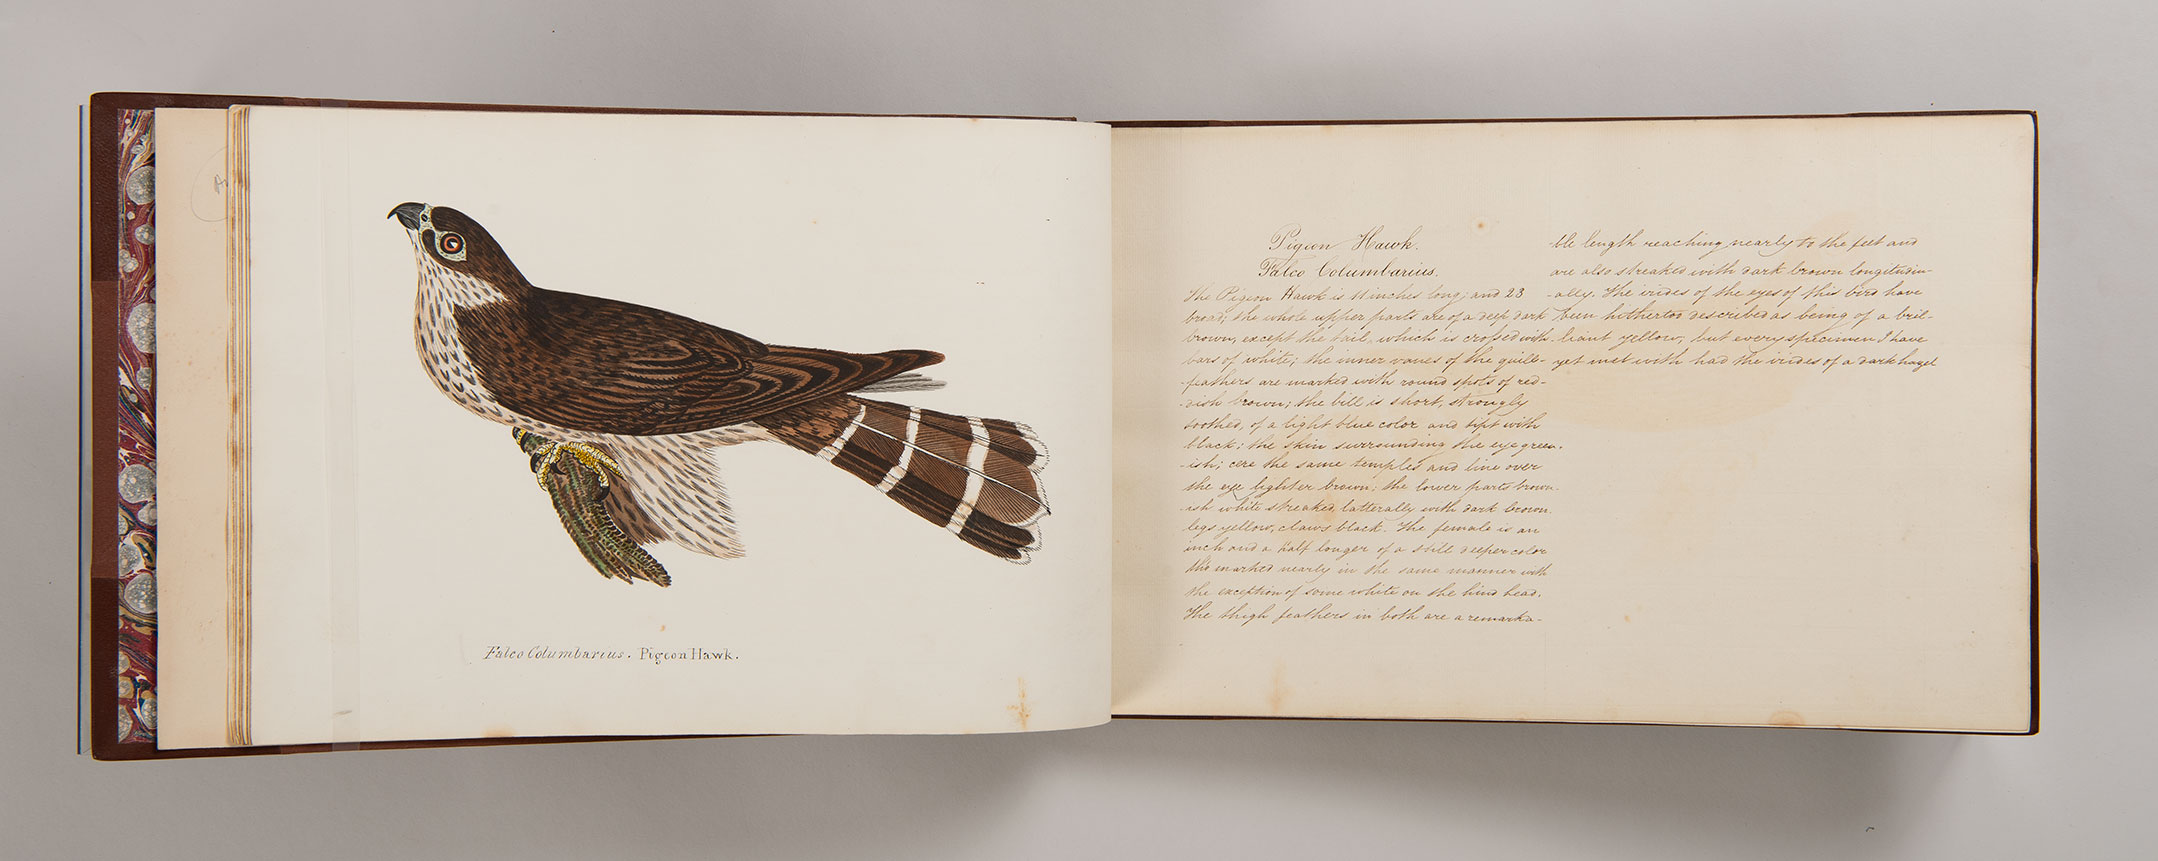 Falco Columbarius. Pigeon Hawk.
Pigeon Hawk.
Falco Columbarius.
The Pigeon Hawk is 11 inches long; and 23
broad; the whole upper parts are of a deep dark
brown, except the tail, which is crossed with
bars of white; the inner vanes of the quill-
feathers are marked with round spots of red-
-dish brown; the bill is short, strongly
toothed, of a light blue color and tipt with
black; the skin surrounding the eye green-
-ish; cere the same temples and line over
the eye lighter brown; the lower parts brown-
ish white streaked latterally with dark brown
legs yellow, claws black. The female is an
inch and a half longer of a still deeper color
tho marked nearly in the same manner with
the exception of some white on the hind head.
The thigh feathers in both are a remarka-
-ble length reaching nearly to the feet and
are also streaked with dark brown longitudin-
-ally. The irides of the eyes of this bird have
been hithertoo described as being of a bril-
liant yellow; but every specimen I have
yet met with had the irides of a dark hazel